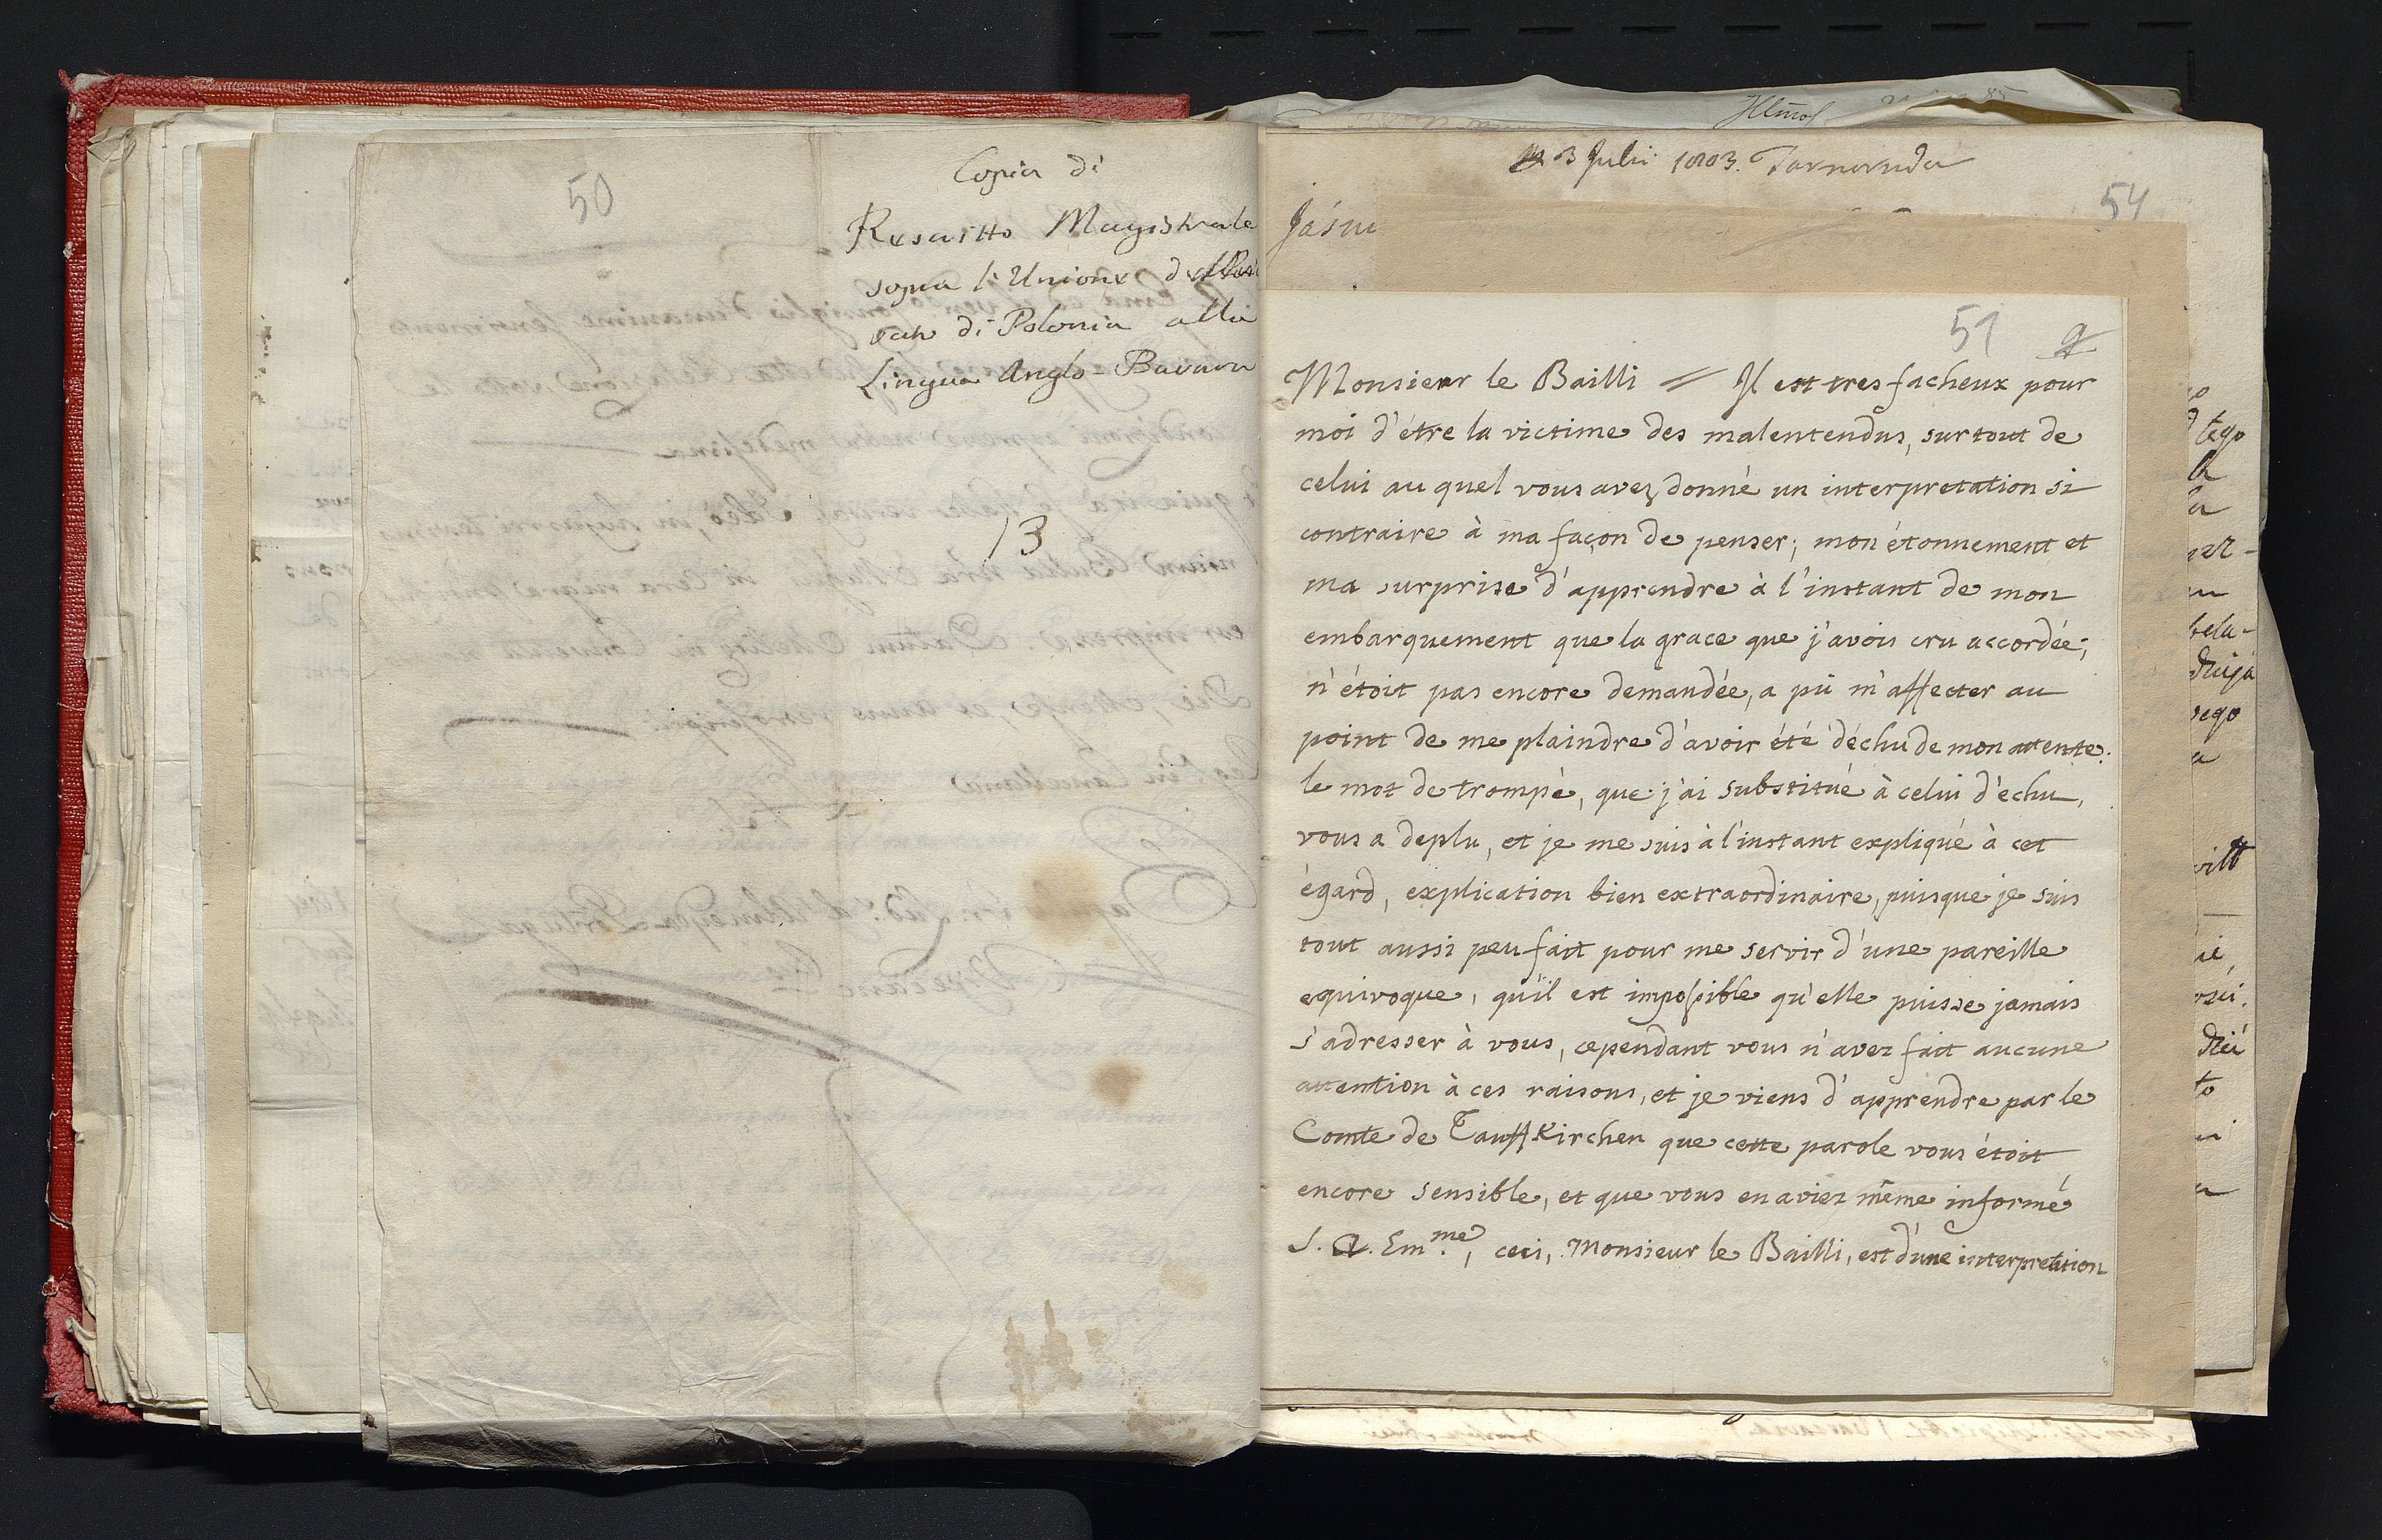 50
Copia di
Rescritto Magistrale
sopra l'Unione del
rato di Polonia alla
Lingua Anglo-Bavara
13
3 Julii 1803. Tarnoruda
54
Jásni
51
Monsieur le Bailli = Il est tres facheux pour
moi d'étre la victime des malentendus, surtout de
celui au quel vous avez donné un interpretation si
contraire à ma façon de penser; mon étonnement et
ma surprise d'apprendre à l'instant de mon
embarquement que la grace que j'avois cru accordée;
n'étoit pas encore demandée, a pû m'affecter au
point de me plaindre d'avoir été déchu de mon attente:
le mot de trompé, que j'ai substitué à celui d'échu,
vous a deplu, et je me suis à l'instant expliqué à cet
égard, explication bien extraordinaire, puisque je suis
tout aussi peu fait pour me servir d'une pareille
equivoque, qu'il est impossible qu'elle puisse jamais
s'adresser à vous, cependant vous n'avez fait aucune
attention à ces raisons, et je viens d'apprendre par le
Comte de Tauffkirchen que cette parole vous étoit
encore sensible, et que vous en aviez même informé
S. A. Em.me, ceci, Monsieur le Bailli, est d'une interpretation